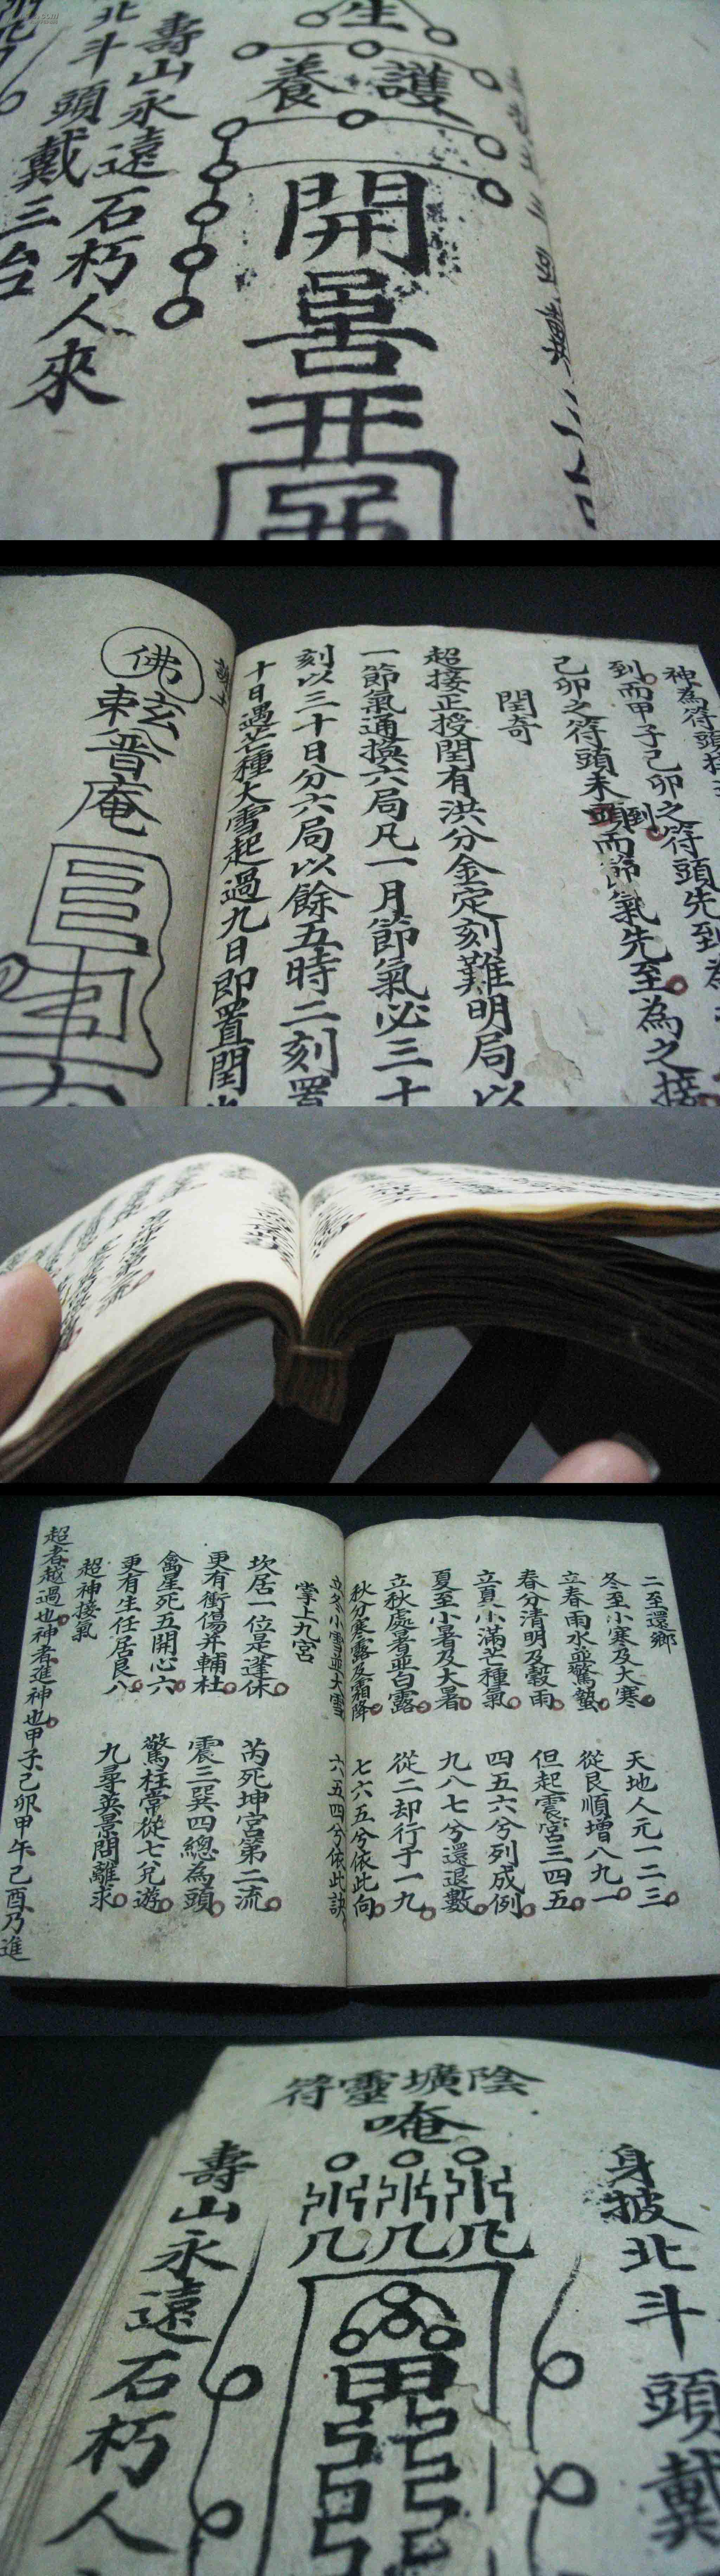 生
護
養
開
壽山永遠石朽人來
北斗頭戴三台
神為符頭
到而甲子己卯之符頭先到為
己卯之符頭未到而節氣先至為之接
閏奇
超接正授閏有洪分金定刻難明局以
一節氣通換六局凡一月節氣必三十
刻以三十日分六局以餘五時二刻置
十日遇芒種大雪起過九日即置閏
佛
敕普庵
二至還鄉
冬至小寒及大寒 天地人元一二三
立春雨水並驚蟄 從艮順增八九一
春分清明及穀雨 但起震宮三四五
立夏小滿芒種氣 四五六兮列成例
夏至小暑及大暑 九八七兮還退數
立秋處暑並白露 從二却行子一九
秋分寒露及霜降 七六五兮依此向
立冬小雪並大雪 六五四兮依此訣
掌上九宮
坎居一位是蓬休 芮死坤宮第二流
更有衝傷并輔杜 震三巽四總為頭
禽星死五開心六 驚柱常從七兌遊
更有生任居艮八 九尋英景問離求
超神接氣
超者越過也神者進神也甲子己卯甲午己酉乃進
陰壙靈符
唵
身披北斗頭戴
壽山永遠石朽人